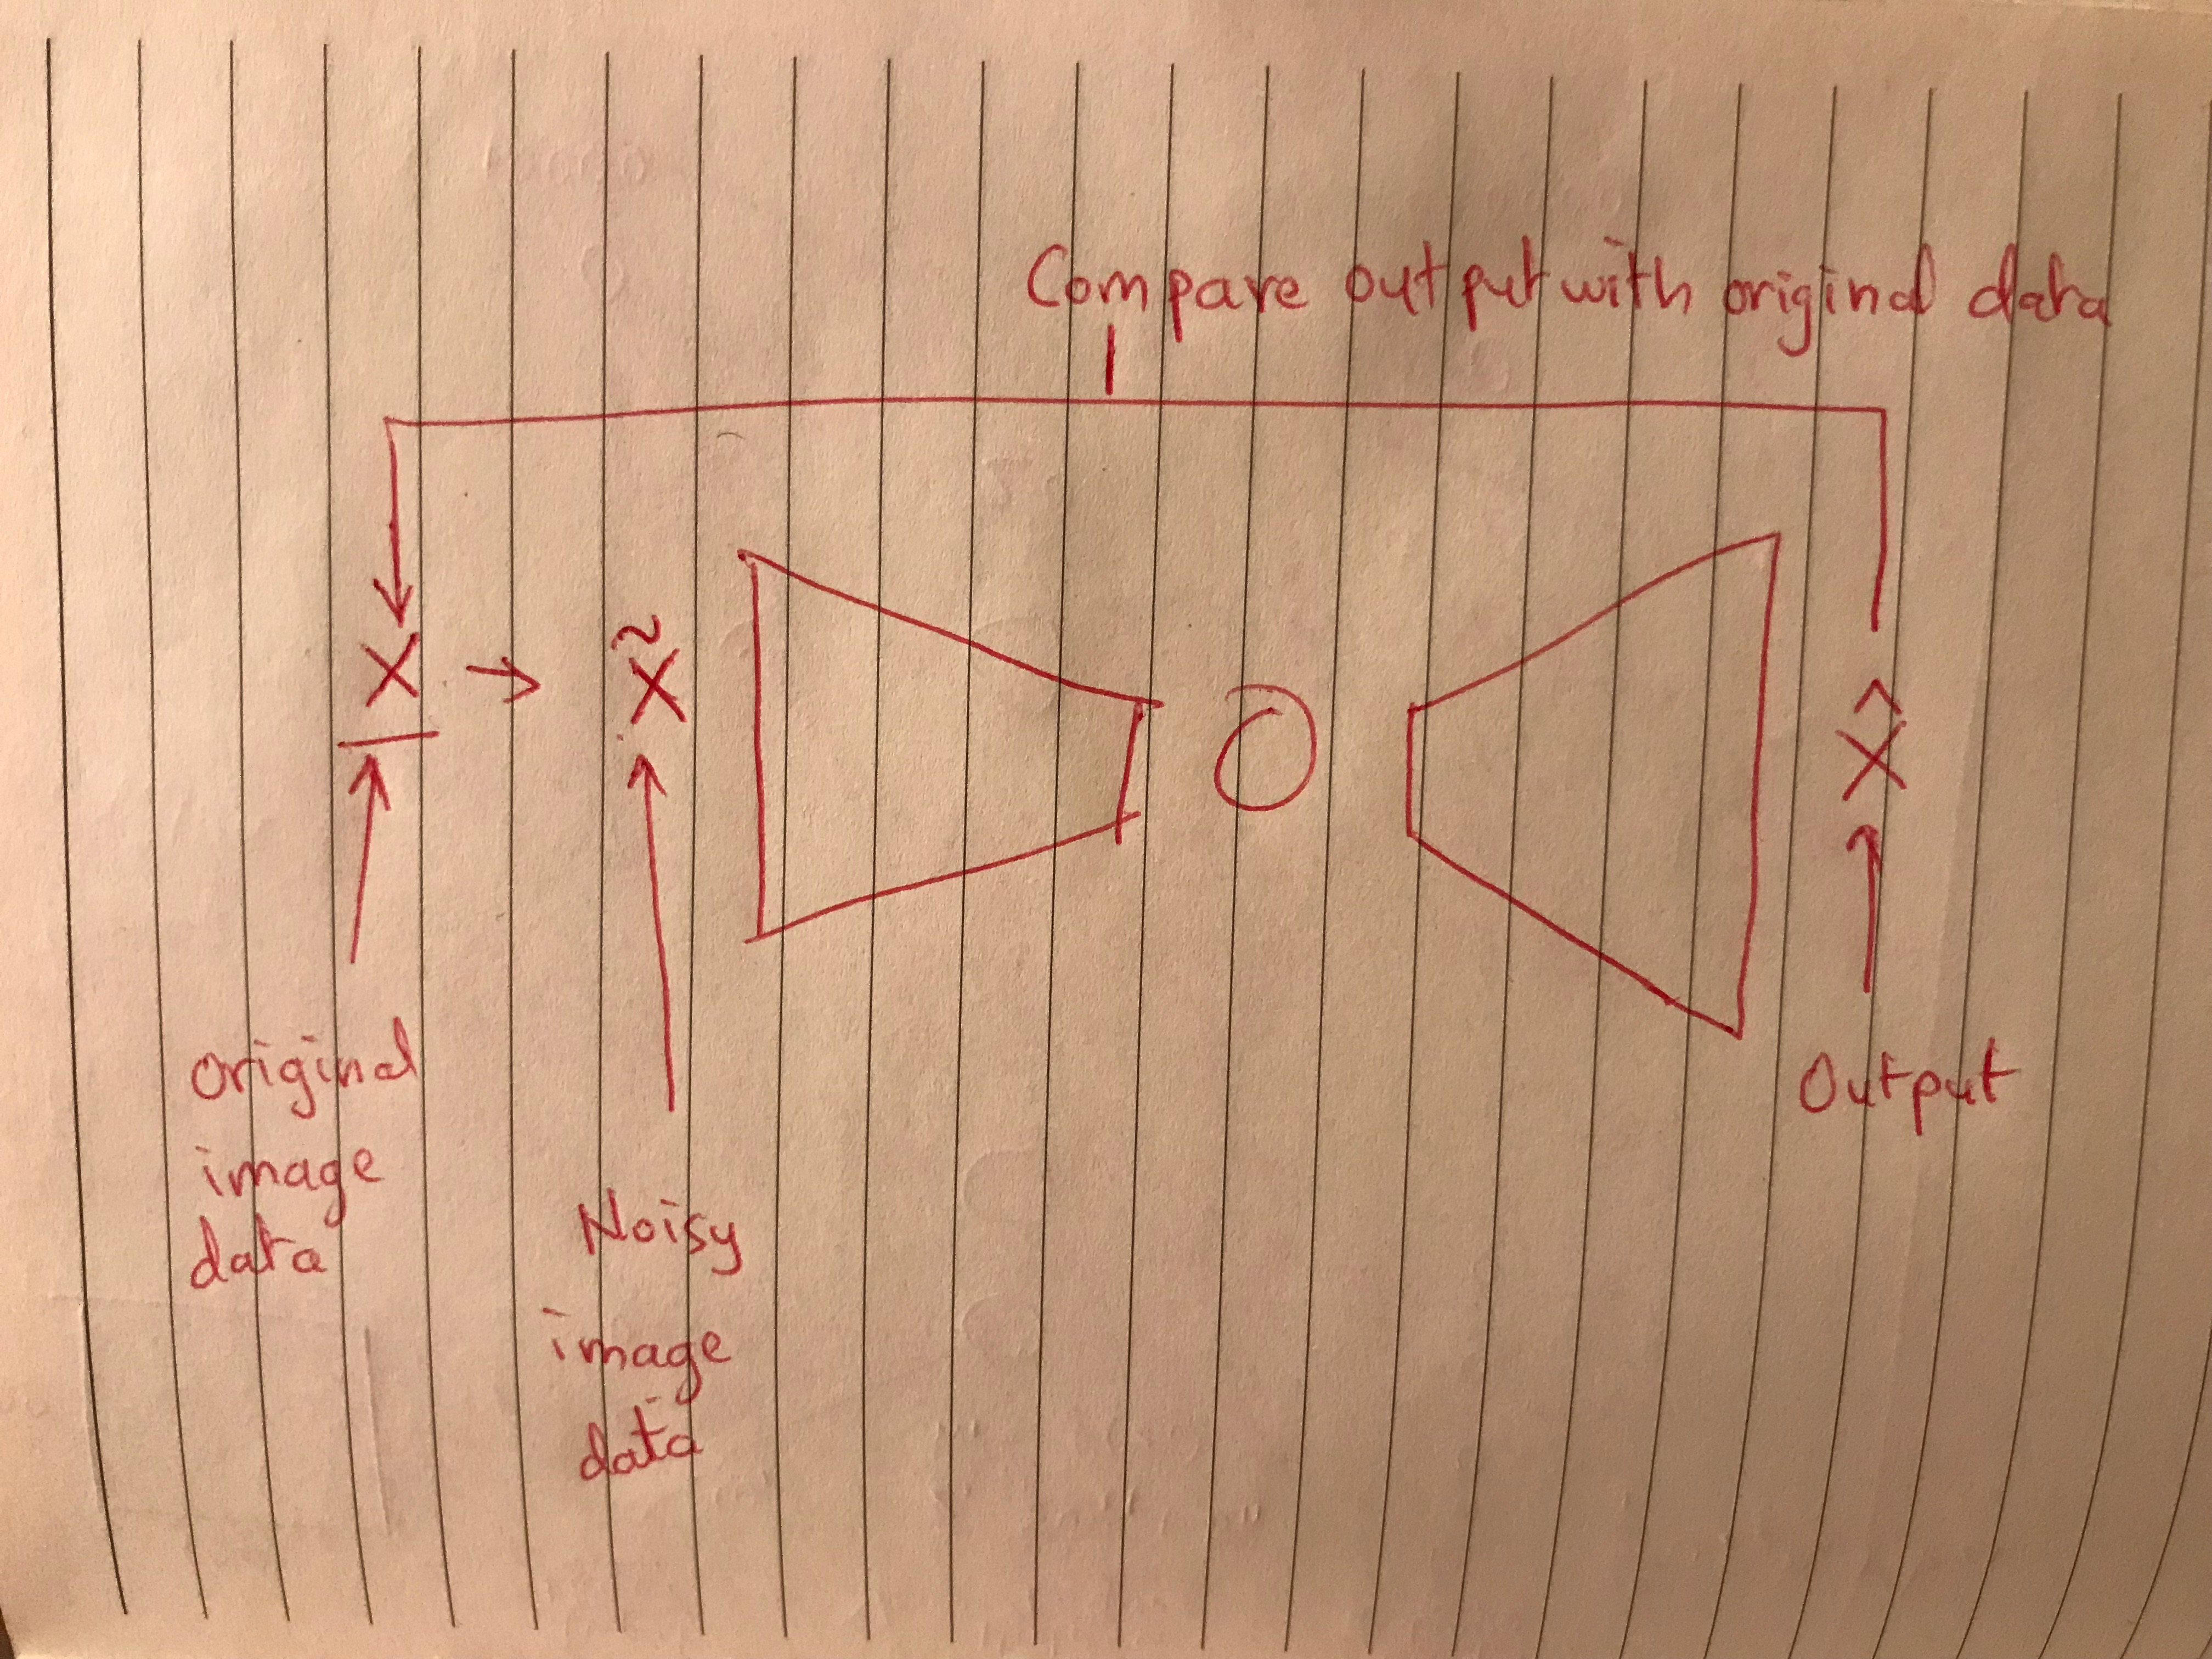 Compare output with original data
X → X̃
X̂
Original
image
data
Noisy
image
data
Output